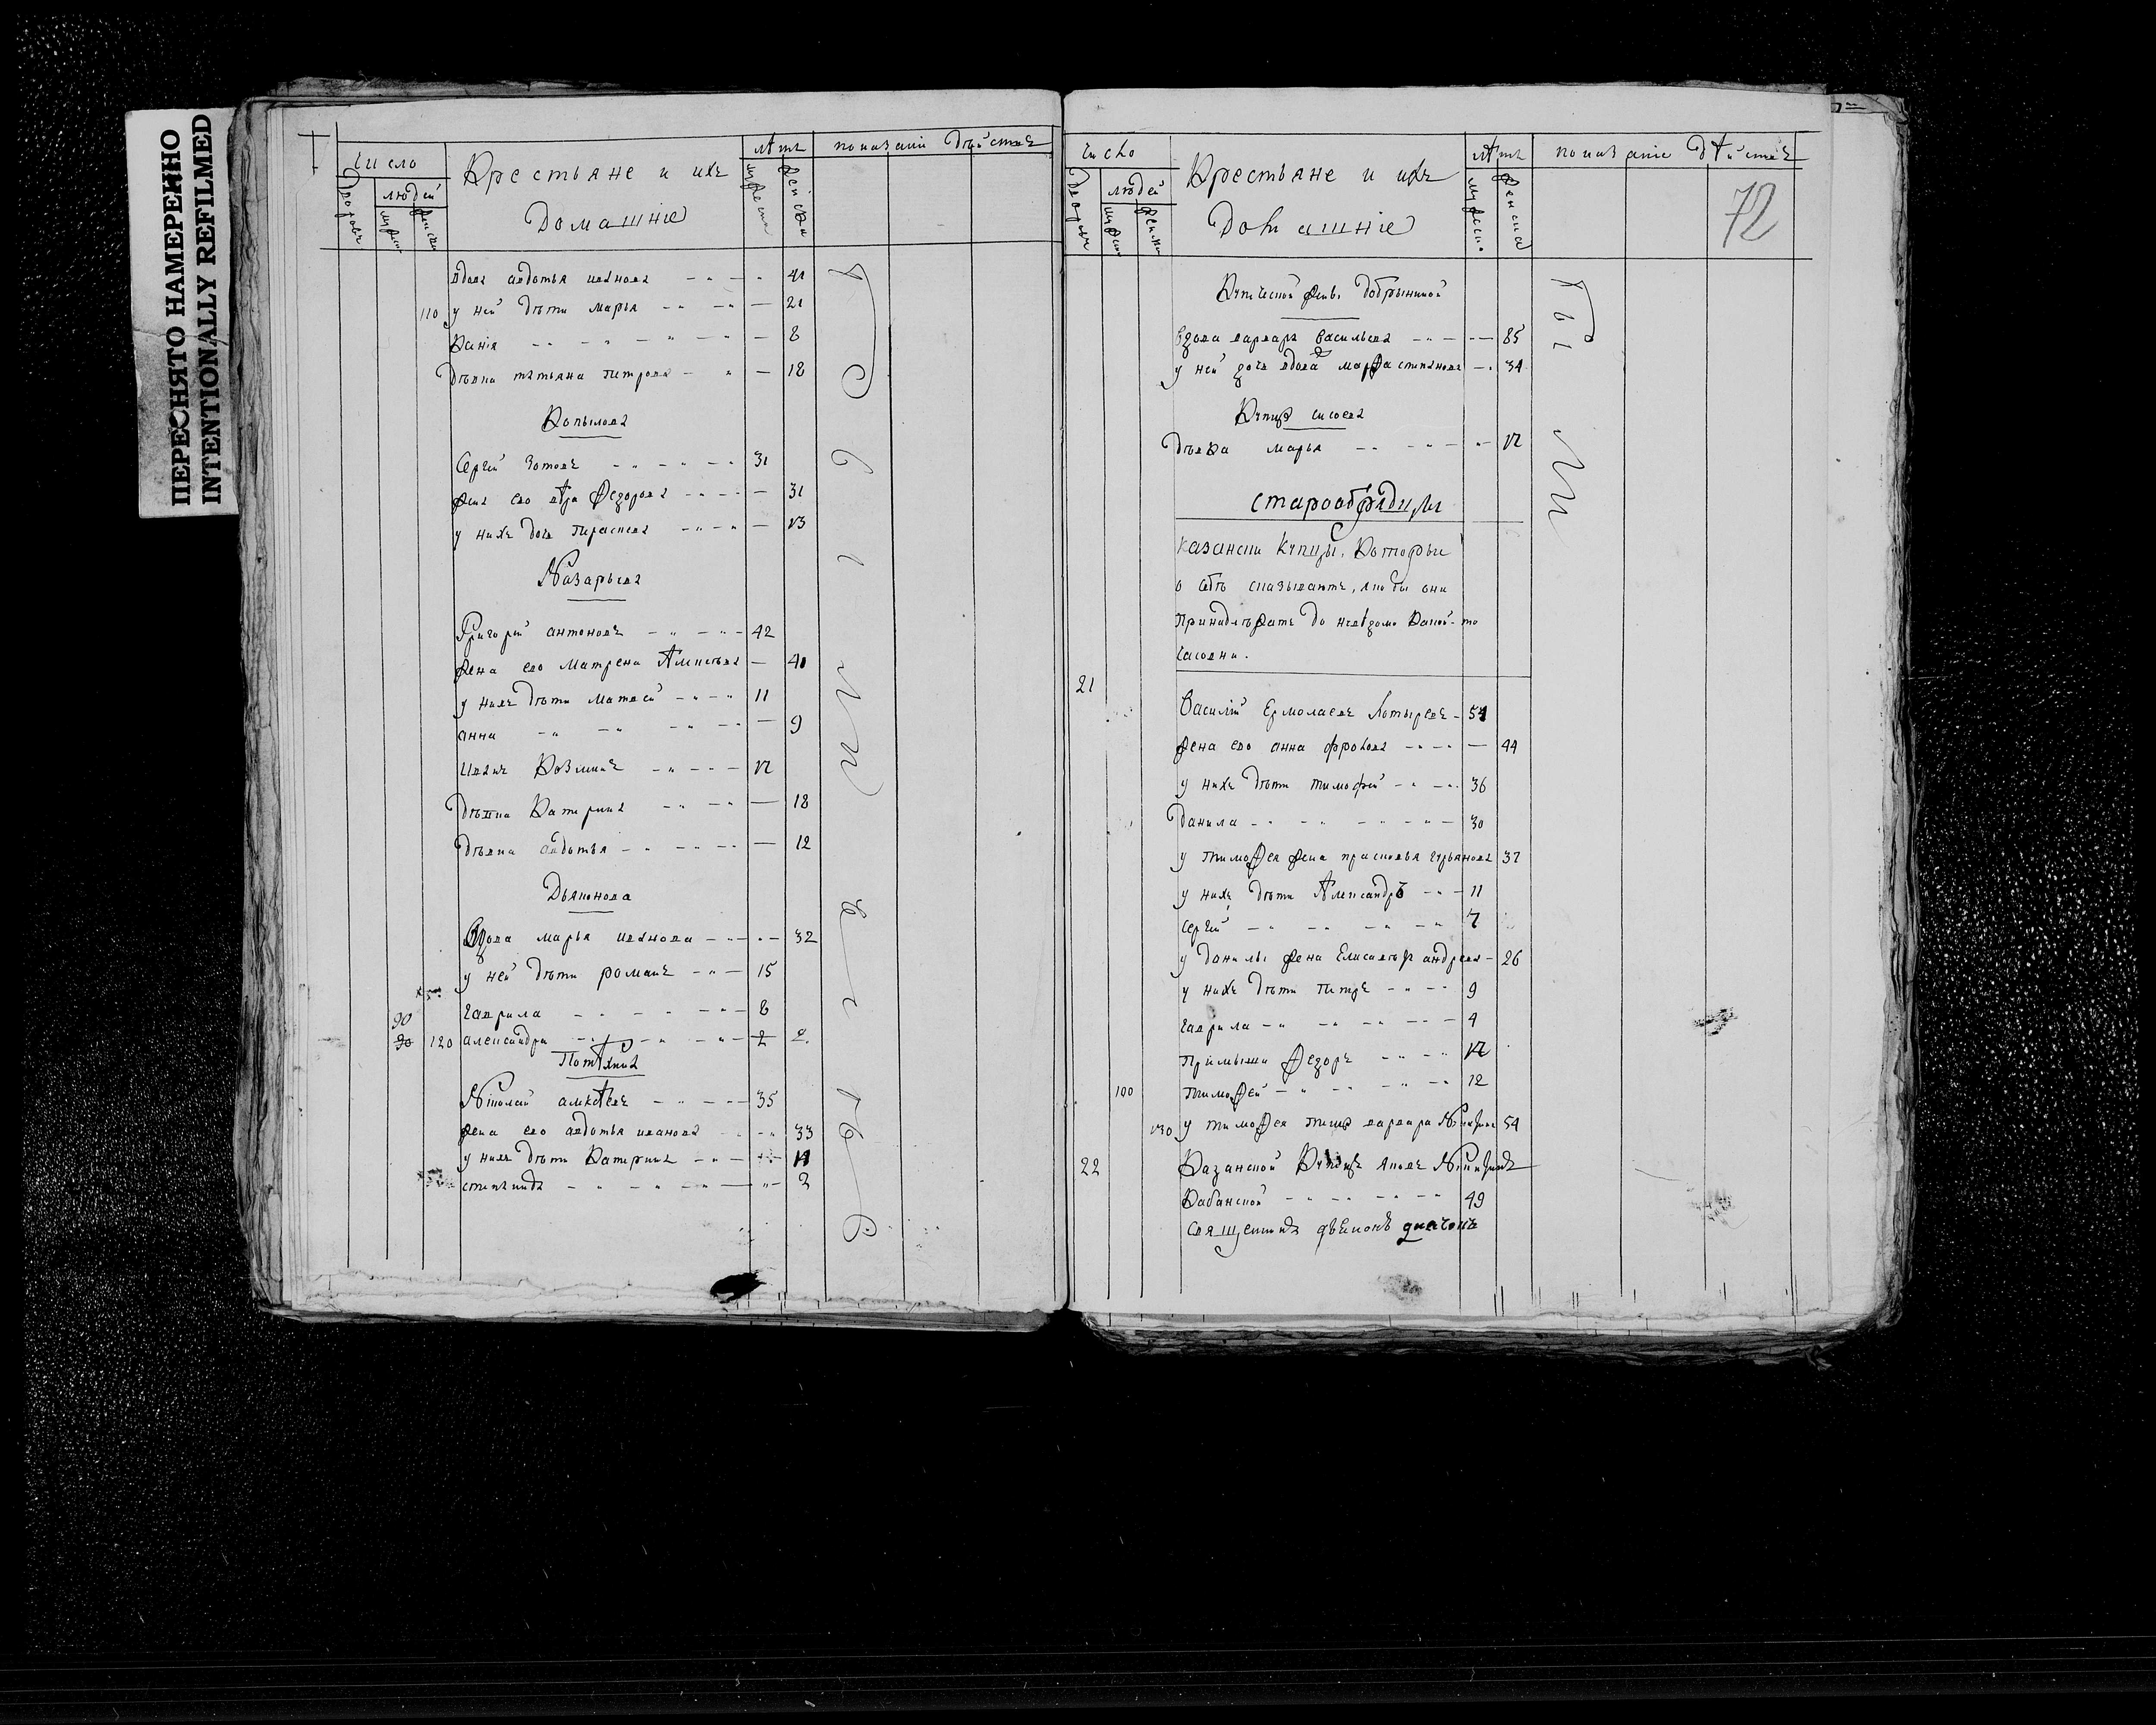 ПЕРЕСНЯТО НАМЕРЕННО
INTENTIONALLY REFILMED
число
дворовъ
людей
мужеска
женска
Крестьяне и ихъ
домашніе
лѣтъ
мужеска
женска
показаніе дѣйства
вдова авдотья иванова 41
110 у ней дѣти марья 21
Ксенія 8
дѣвка татьяна петрова 18
Копылова
Сергей Зотовъ 31
жена его Федорова 31
у нихъ дочь Параскева 13
Назарьева
Григорей антоновъ 42
жена его Матрена Алексѣева 40
у нихъ дѣти Матвей 11
анна 9
Иванъ Козминъ 17
дѣвка Катерина 18
дѣвка авдотья 12
Дьяконова
вдова марья иванова 32
у ней дѣти романъ 15
гаврила 8
90
90 120 александра 2 2
Потѣхина
Николай алексѣевъ 35
жена его авдотья иванова 33
у нихъ дѣти Катерина 11
степанида 2
число
дворовъ
людей
мужеска
женска
Крестьяне и ихъ
домашніе
лѣтъ
мужеска
женска
показаніе дѣйства
72
Купеческой жены Добрыниной
Вдова варвара Васильева 85
у ней дочь вдова марфа степанова 34
Купца сысоева
дѣвка марья 17
старообрядцы
казански купцы, которые
о себѣ сказываютъ, что бы они
принадлежатъ до невѣдомо какой-то
часовни.
21
Василій Ермолаевъ Котыревъ 54
жена его анна фролова 44
у нихъ дѣти тимофей 36
данила 30
у тимофея жена прасковья гурьянова 37
у нихъ дѣти Александръ 11
сергей 7
у данилы жена Елисаветъ андреева 26
у нихъ дѣти петръ 9
гаврила 4
Пріимыши Федоръ 17
100 тимофей 12
130 у тимофея теща варвара 54
22 Казанской купецъ яковъ
Кабанской 49